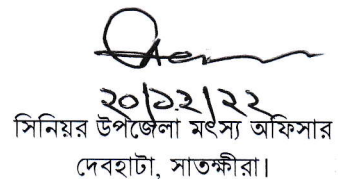 ২০/১২/২২
সিনিয়র উপজেলা মৎস্য অফিসার
দেবহাটা, সাতক্ষীরা।